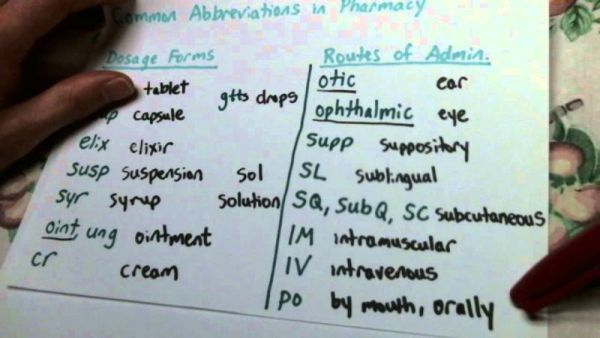 Common Abbreviations in Pharmacy
Dosage Forms
tablet
gtts drops
capsule
elix elixir
susp suspension sol
syr syrup solution
oint, ung ointment
cr cream
Routes of Admin.
otic ear
ophthalmic eye
supp suppository
SL sublingual
SQ, SubQ, SC subcutaneous
IM intramuscular
IV intravenous
PO by mouth, orally